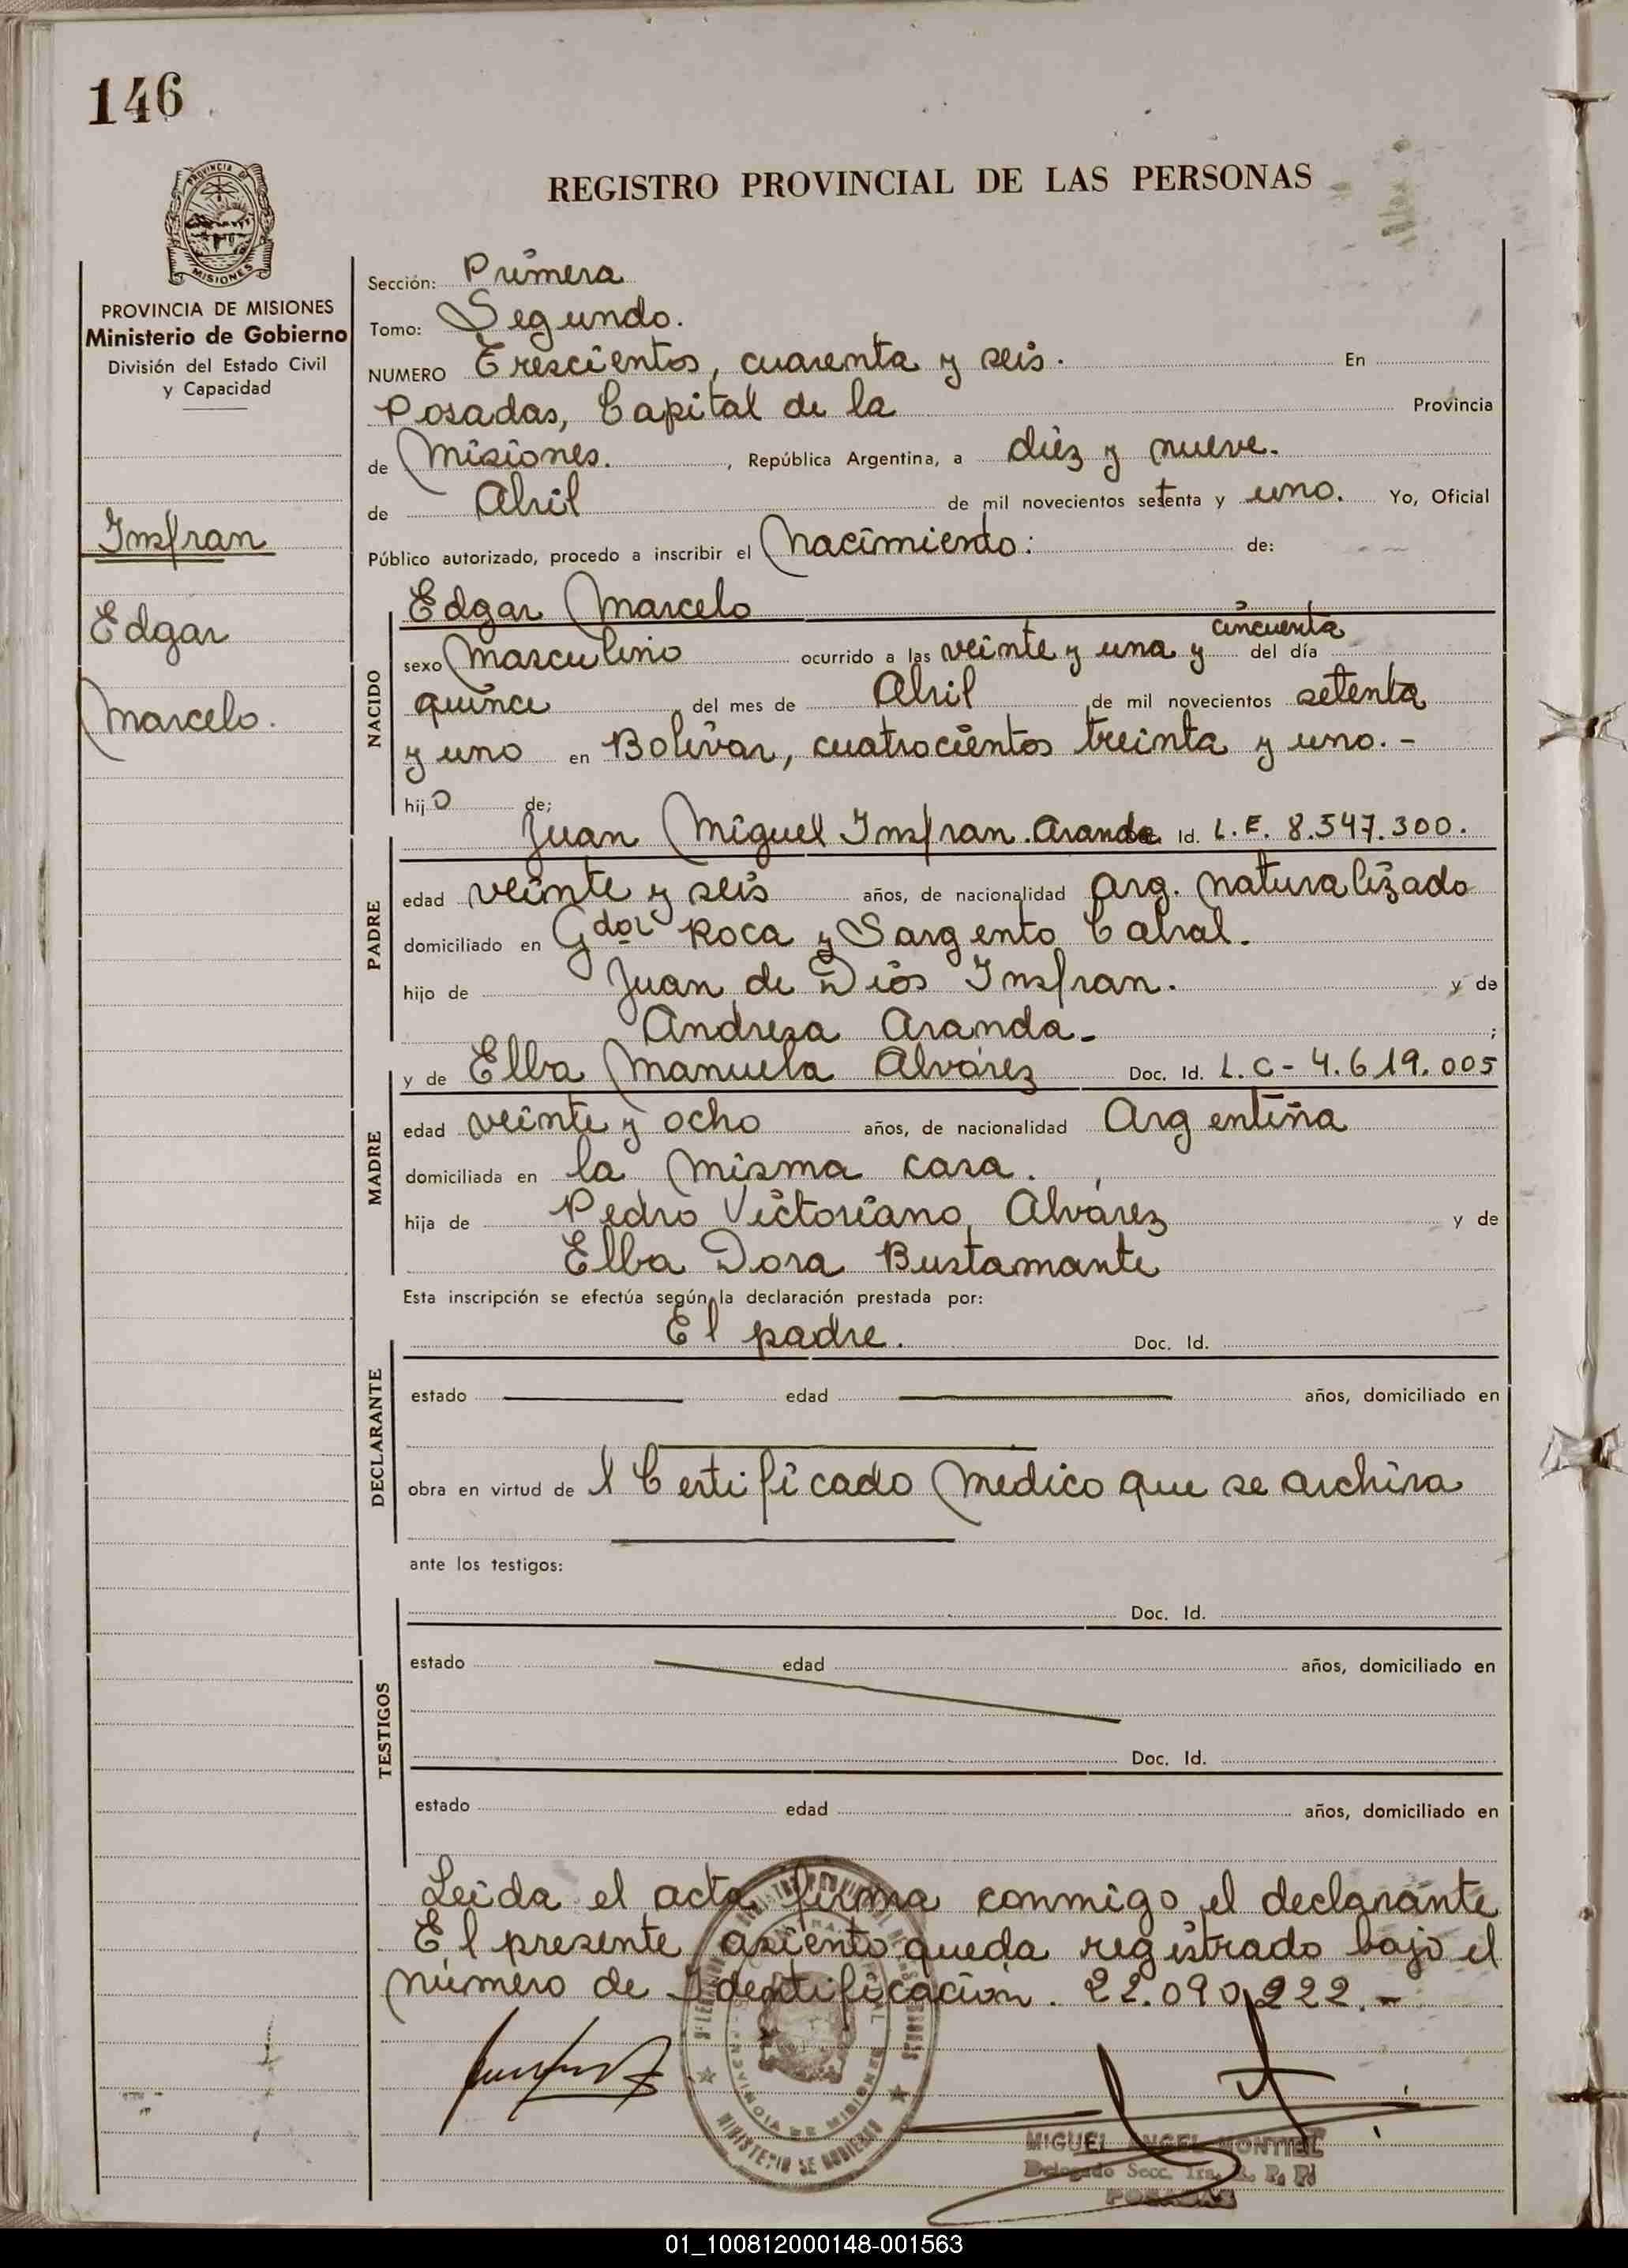 146
PROVINCIA DE
MISIONES
REGISTRO PROVINCIAL DE LAS PERSONAS
PROVINCIA DE MISIONES
Ministerio de Gobierno
División del Estado Civil
y Capacidad
Insfran
Edgar
Marcelo.
Sección: Primera
Tomo: Segundo.
NUMERO Trescientos, cuarenta y seis. En
Posadas, Capital de la Provincia
de Misiones. , República Argentina, a diez y nueve.
de Abril de mil novecientos setenta y uno. Yo, Oficial
Público autorizado, procedo a inscribir el Nacimiento: de:
Edgar Marcelo
cincuenta
NACIDO
sexo Masculino ocurrido a las veinte y una y del día
quince del mes de Abril de mil novecientos setenta
y uno en Bolívar, cuatrocientos treinta y uno.-
hijo de;
Juan Miguel Insfran Aranda Id. L.E. 8.547.300.
PADRE
edad veinte y seis años, de nacionalidad Arg. naturalizado
domiciliado en Gdor Roca y Sargento Cabral.
hijo de Juan de Dios Insfran. y de
Andresa Aranda- ;
y de Elba Manuela Alvárez Doc. Id. L.C- 4.619.005
MADRE
edad veinte y ocho años, de nacionalidad Argentina
domiciliada en la misma casa.
hija de Pedro Victoriano Alvárez y de
Elba Dora Bustamante
Esta inscripción se efectúa según la declaración prestada por:
El padre. Doc. Id.
DECLARANTE
estado edad años, domiciliado en
obra en virtud de l Certificado Medico que se archiva
ante los testigos:
TESTIGOS
Doc. Id.
estado edad años, domiciliado en
Doc. Id.
estado edad años, domiciliado en
Leida el acta firma conmigo el declarante
El presente asiento queda registrado bajo el
número de Identificación. 22.090.222.-
PROVINCIA DE MISIONES
MINISTERIO DE GOBIERNO
MIGUEL ANGEL MONTIEL
Delegado Secc. 1ra. R. P. P.
POSADAS
01_100812000148-001563